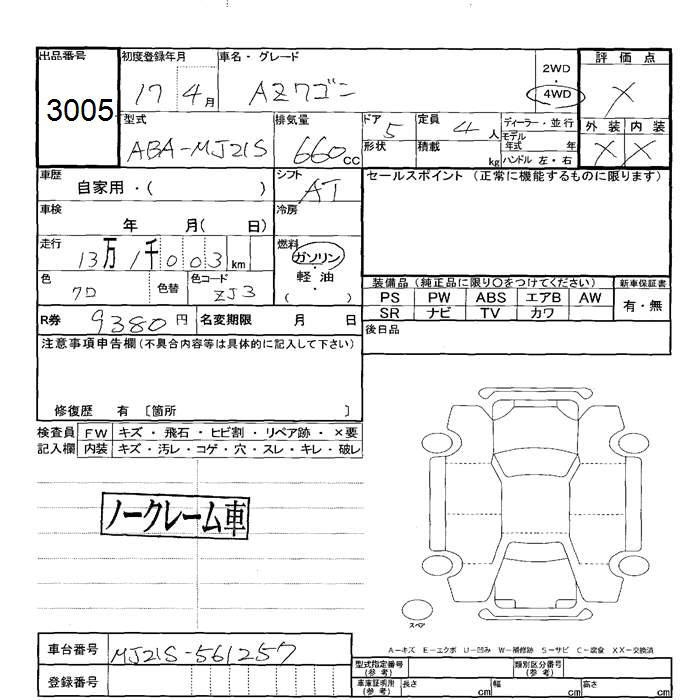 出品番号
3005
初度登録年月
17 4月
車名・グレード
AZワゴン
2WD
・
4WD
評価点
X
外装 内装
X X
型式
ABA-MJ21S
排気量
660cc
ドア 5
形状
定員 4人
積載 kg
ディーラー・並行
モデル
年式 年
ハンドル 左・右
車歴
自家用・( )
シフト
AT
セールスポイント (正常に機能するものに限ります)
車検
年 月( 日)
冷房
走行
13万1千003km
燃料
ガソリン
軽・油
・
( )
色
色替
色コード
ZJ3
装備品 (純正品に限り〇をつけてください) 新車保証書
PS PW ABS エアB AW
SR ナビ TV カワ
有・無
R券 9380円
名変期限 月 日
後日品
注意事項申告欄(不具合内容等は具体的に記入して下さい)
修復歴 有 〔箇所 〕
検査員 FW キズ・飛石・ヒビ割・リペア跡・×要
記入欄 内装 キズ・汚レ・コゲ・穴・スレ・キレ・破レ
ノークレーム車
スペア
A-キズ E-エクボ U-凹み W-補修跡 S-サビ C-腐食 XX-交換済
車台番号 MJ21S-561257
登録番号
型式指定番号
(参考)
類別区分番号
(参考)
車庫証明用
(参考)
長さ cm 幅 cm 高さ cm